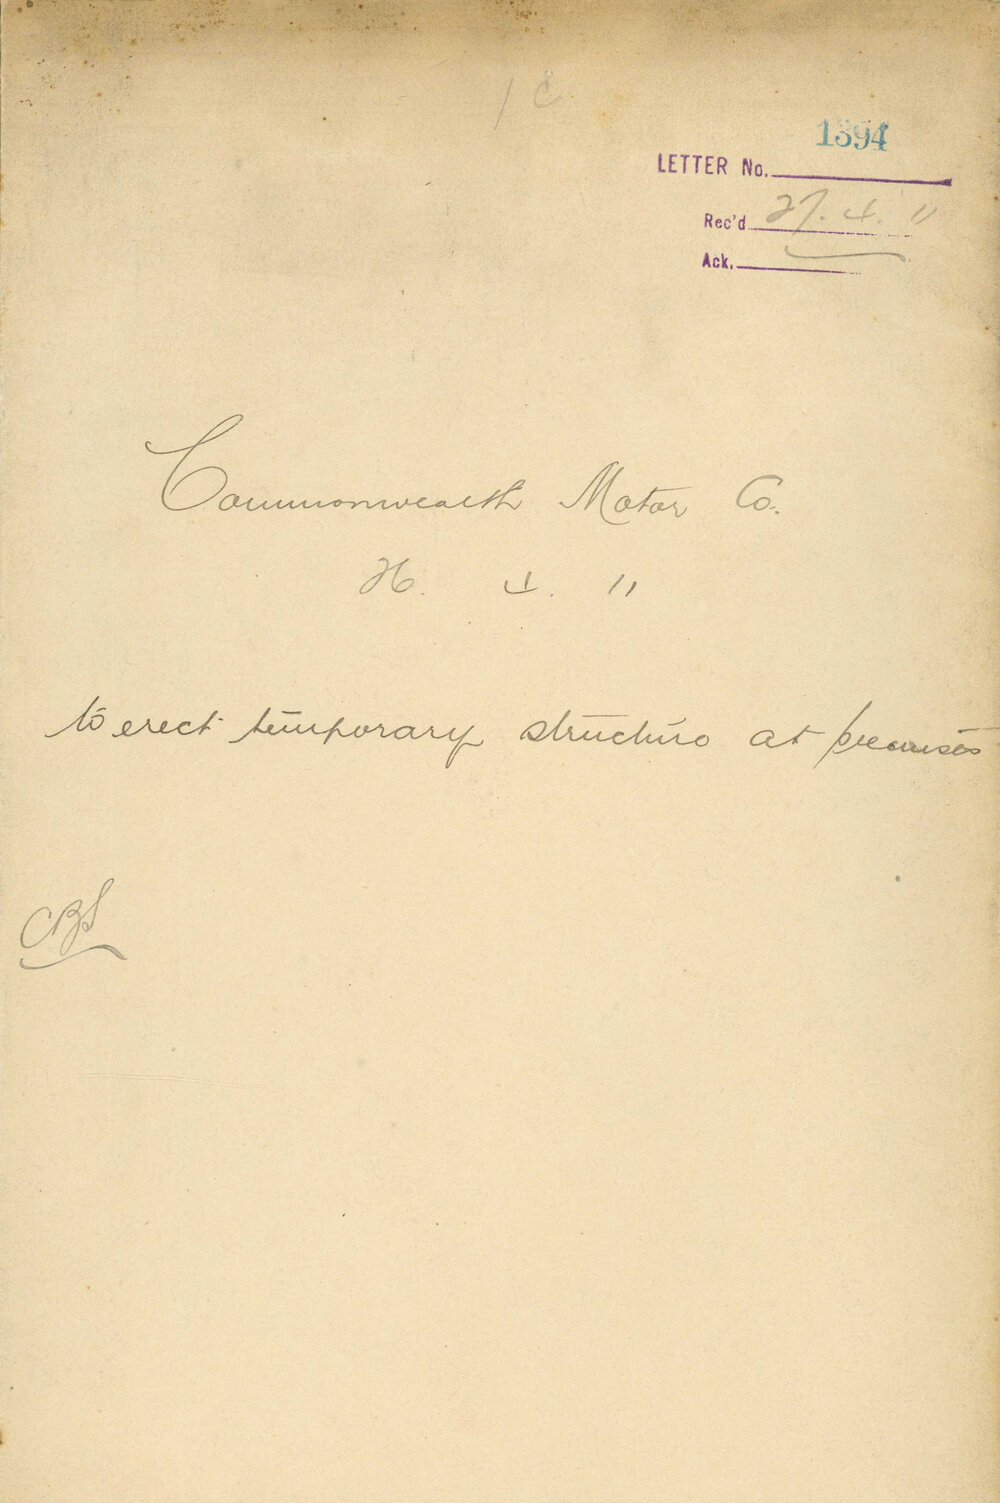 1394
LETTER No.
Rec'd 27. 4. 11
Ack.
Commonwealth Motor Co.
26. 4. 11
to erect temporary structure at premises
CBS